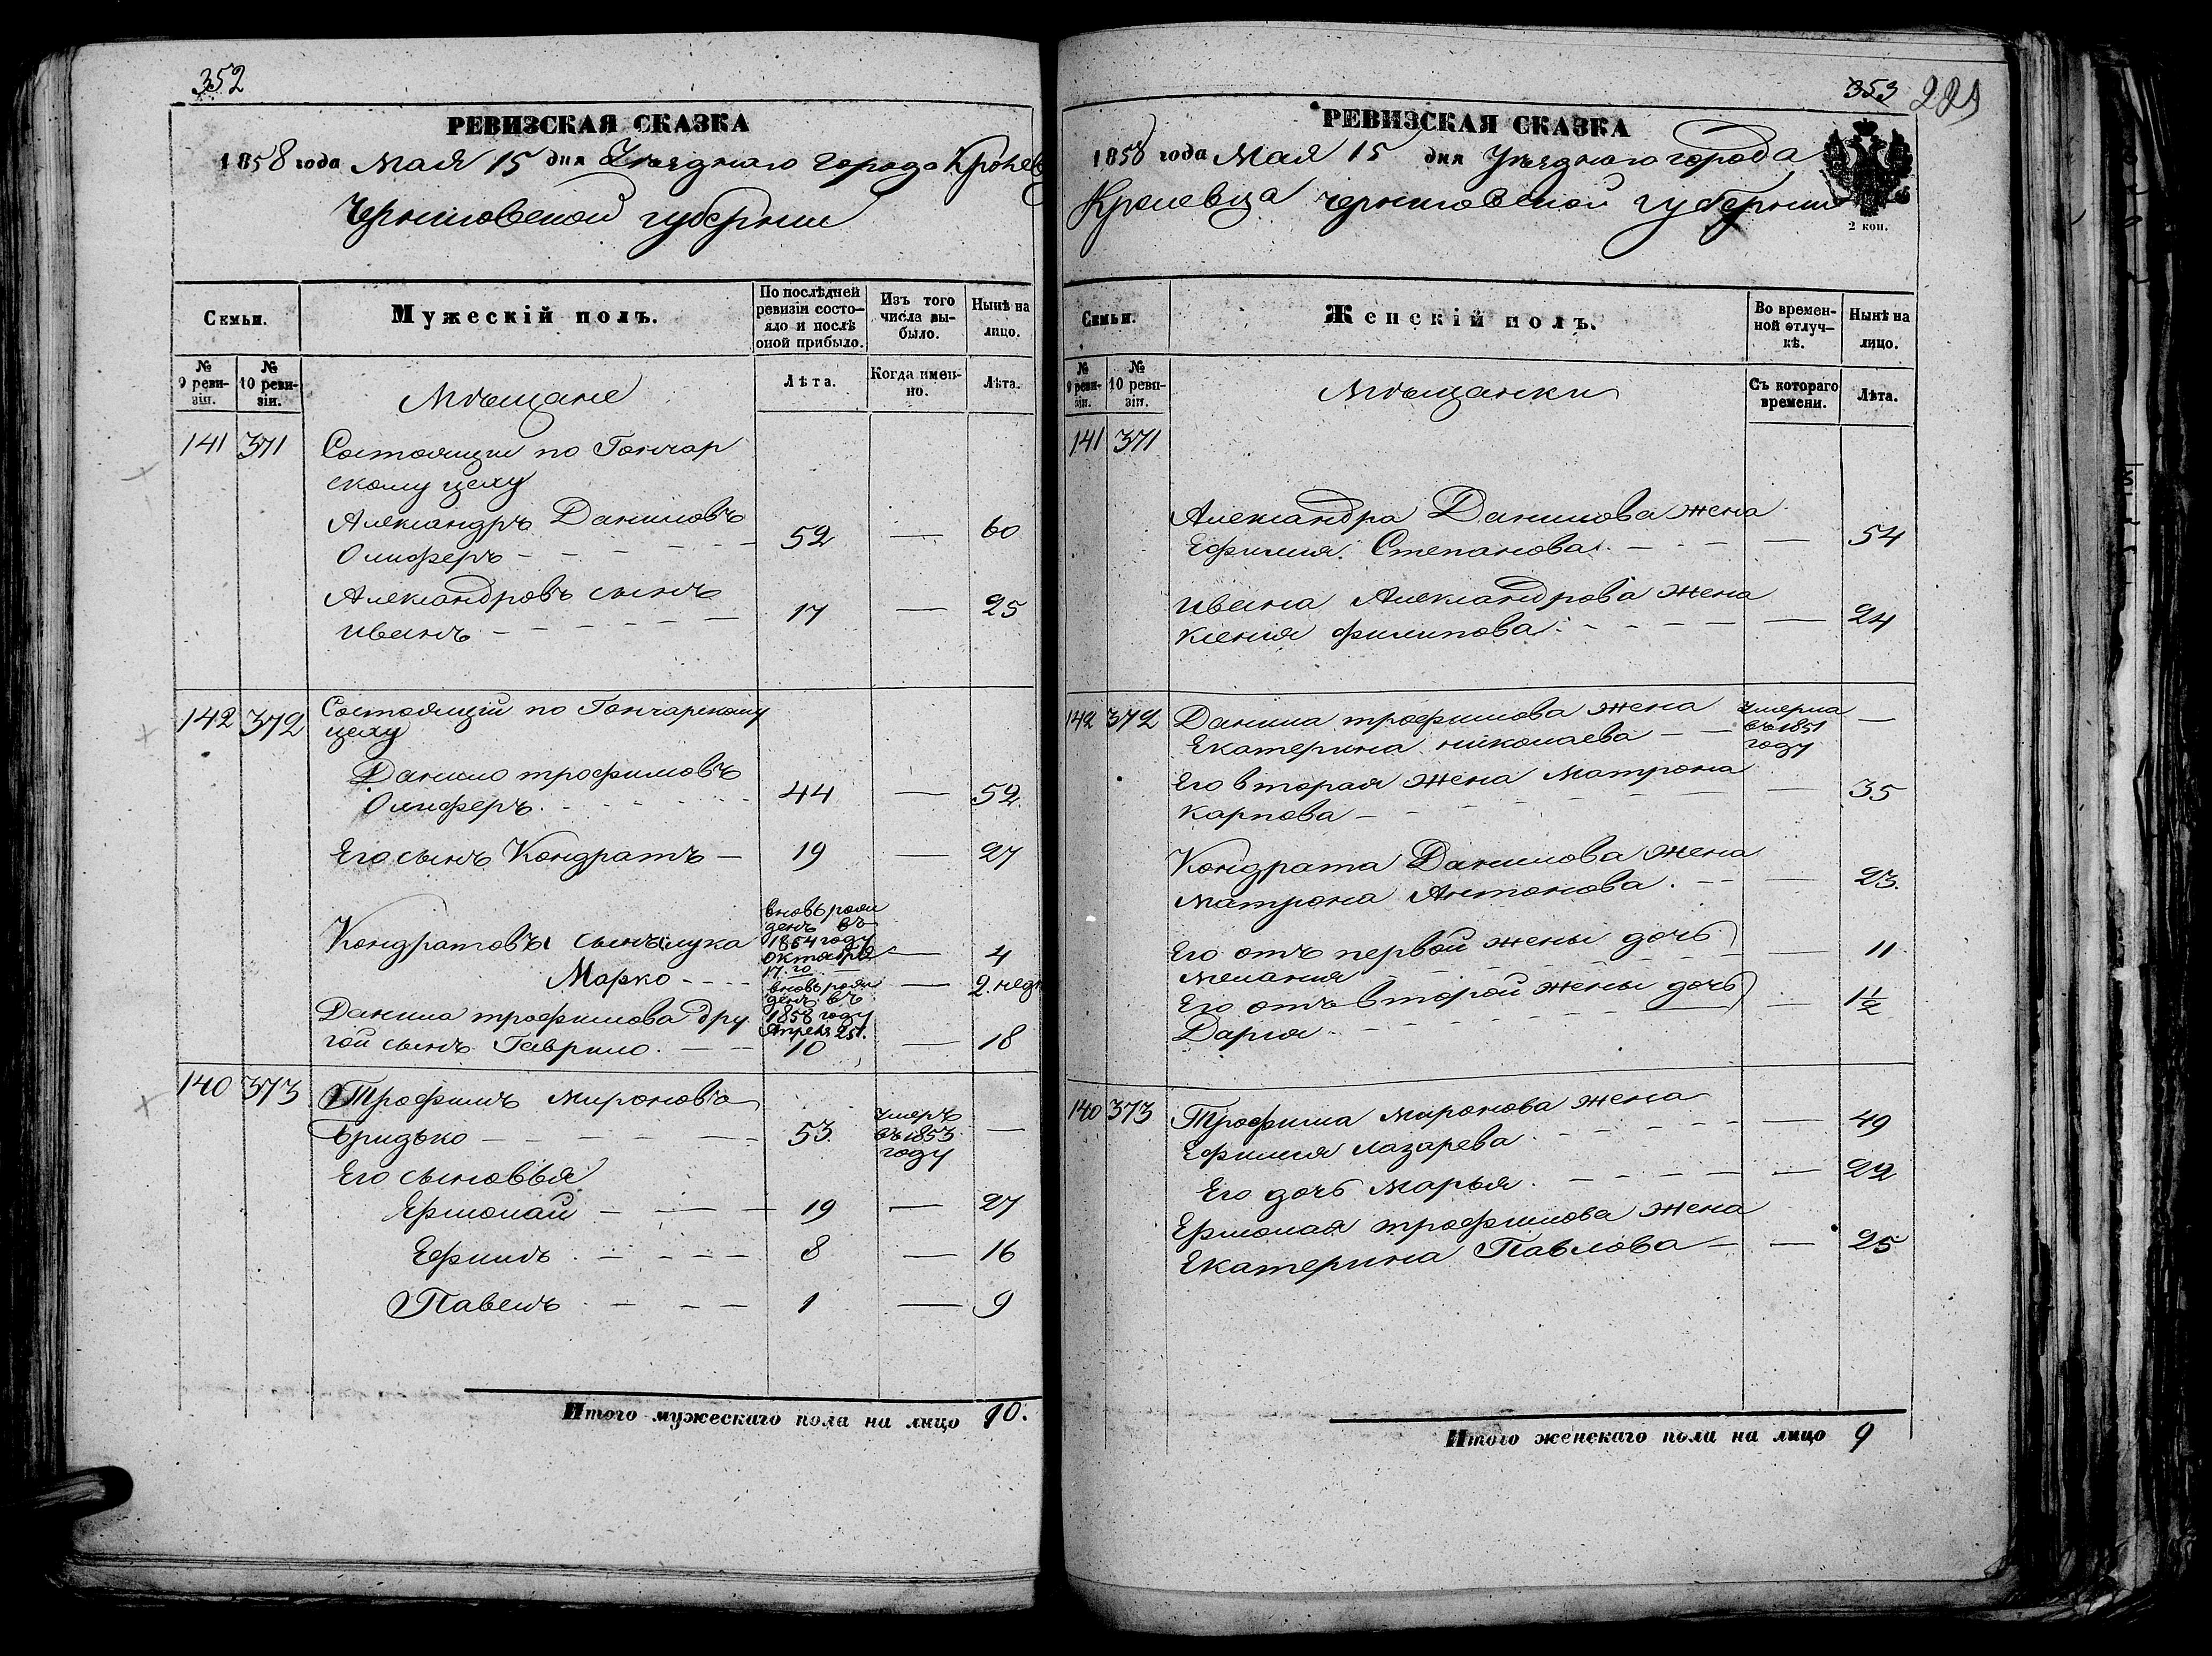 352
РЕВИЗСКАЯ СКАЗКА
1858 года Мая 15 дня Уѣзднаго города Кролев
Черниговской губернии
Семьи.
Мужескій полъ.
По послѣдней ревизіи состояло и послѣ оной прибыло.
Изъ того числа выбыло.
Нынѣ на лицо.
№ 9 ревизіи.
№ 10 ревизіи.
Мѣщане
Лѣта.
Когда именно.
Лѣта.
141 371 Состоящие по Гончар
скому цеху
Александръ Даниловъ
Олиферъ - - - 52 — 60
Александровъ сынъ
Иванъ - - - 17 — 25
142 372 Состоящий по Гончарскому
цеху
Данило Трофимовъ
Олиферъ - - - 44 — 52.
Его сынъ Кондратъ — 19 — 27
Кондратовы сынъ Лука вновь рожденъ въ 1854 году октября 17.го — 4
Марко - - - вновь рожденъ въ 1858 году Апреля 25. — 2. нед
Данила Трофимова дру
гой сынъ Гаврило. — 10 — 18
140 373 Трофимъ Мироновъ
Бридько - - - 53. умеръ въ 1853 году —
Его сыновья
Ермолай — 19 — 27
Ефимъ - - - 8 — 16
Павелъ - - - 1 — 9
Итого мужескаго пола на лицо 10.
353 289
РЕВИЗСКАЯ СКАЗКА
1858 года Мая 15 дня Уѣзднаго города
Кролевца Черниговской губернии
2 коп.
Семьи.
Женскій полъ.
Во временной отлучкѣ.
Нынѣ на лицо.
№ 9 ревизіи.
№ 10 ревизіи.
Мѣщанки
Съ котораго времени.
Лѣта.
141 371
Александра Данилова жена
Ефимия Степанова. - - - — 54
Ивана Александрова жена
Ксения Филипова. - - - — 24
142 372 Данила Трофимова жена
Екатерина Николаева — умерла въ 1851 году —
Его вторая жена Матрона
Карпова — — 35
Кондрата Данилова жена
Матрона Антонова. - — 23.
Его отъ первой жены дочь
Мелания - - - — 11
Его отъ второй жены дочь
Дарья - - - — 1½
140 373 Трофима Миронова жена
Ефимия Лазарева - - - — 49
Его дочь Марья. - - - — 22
Ермолая Трофимова жена
Екатерина Павлова — — 25
Итого женскаго пола на лицо 9